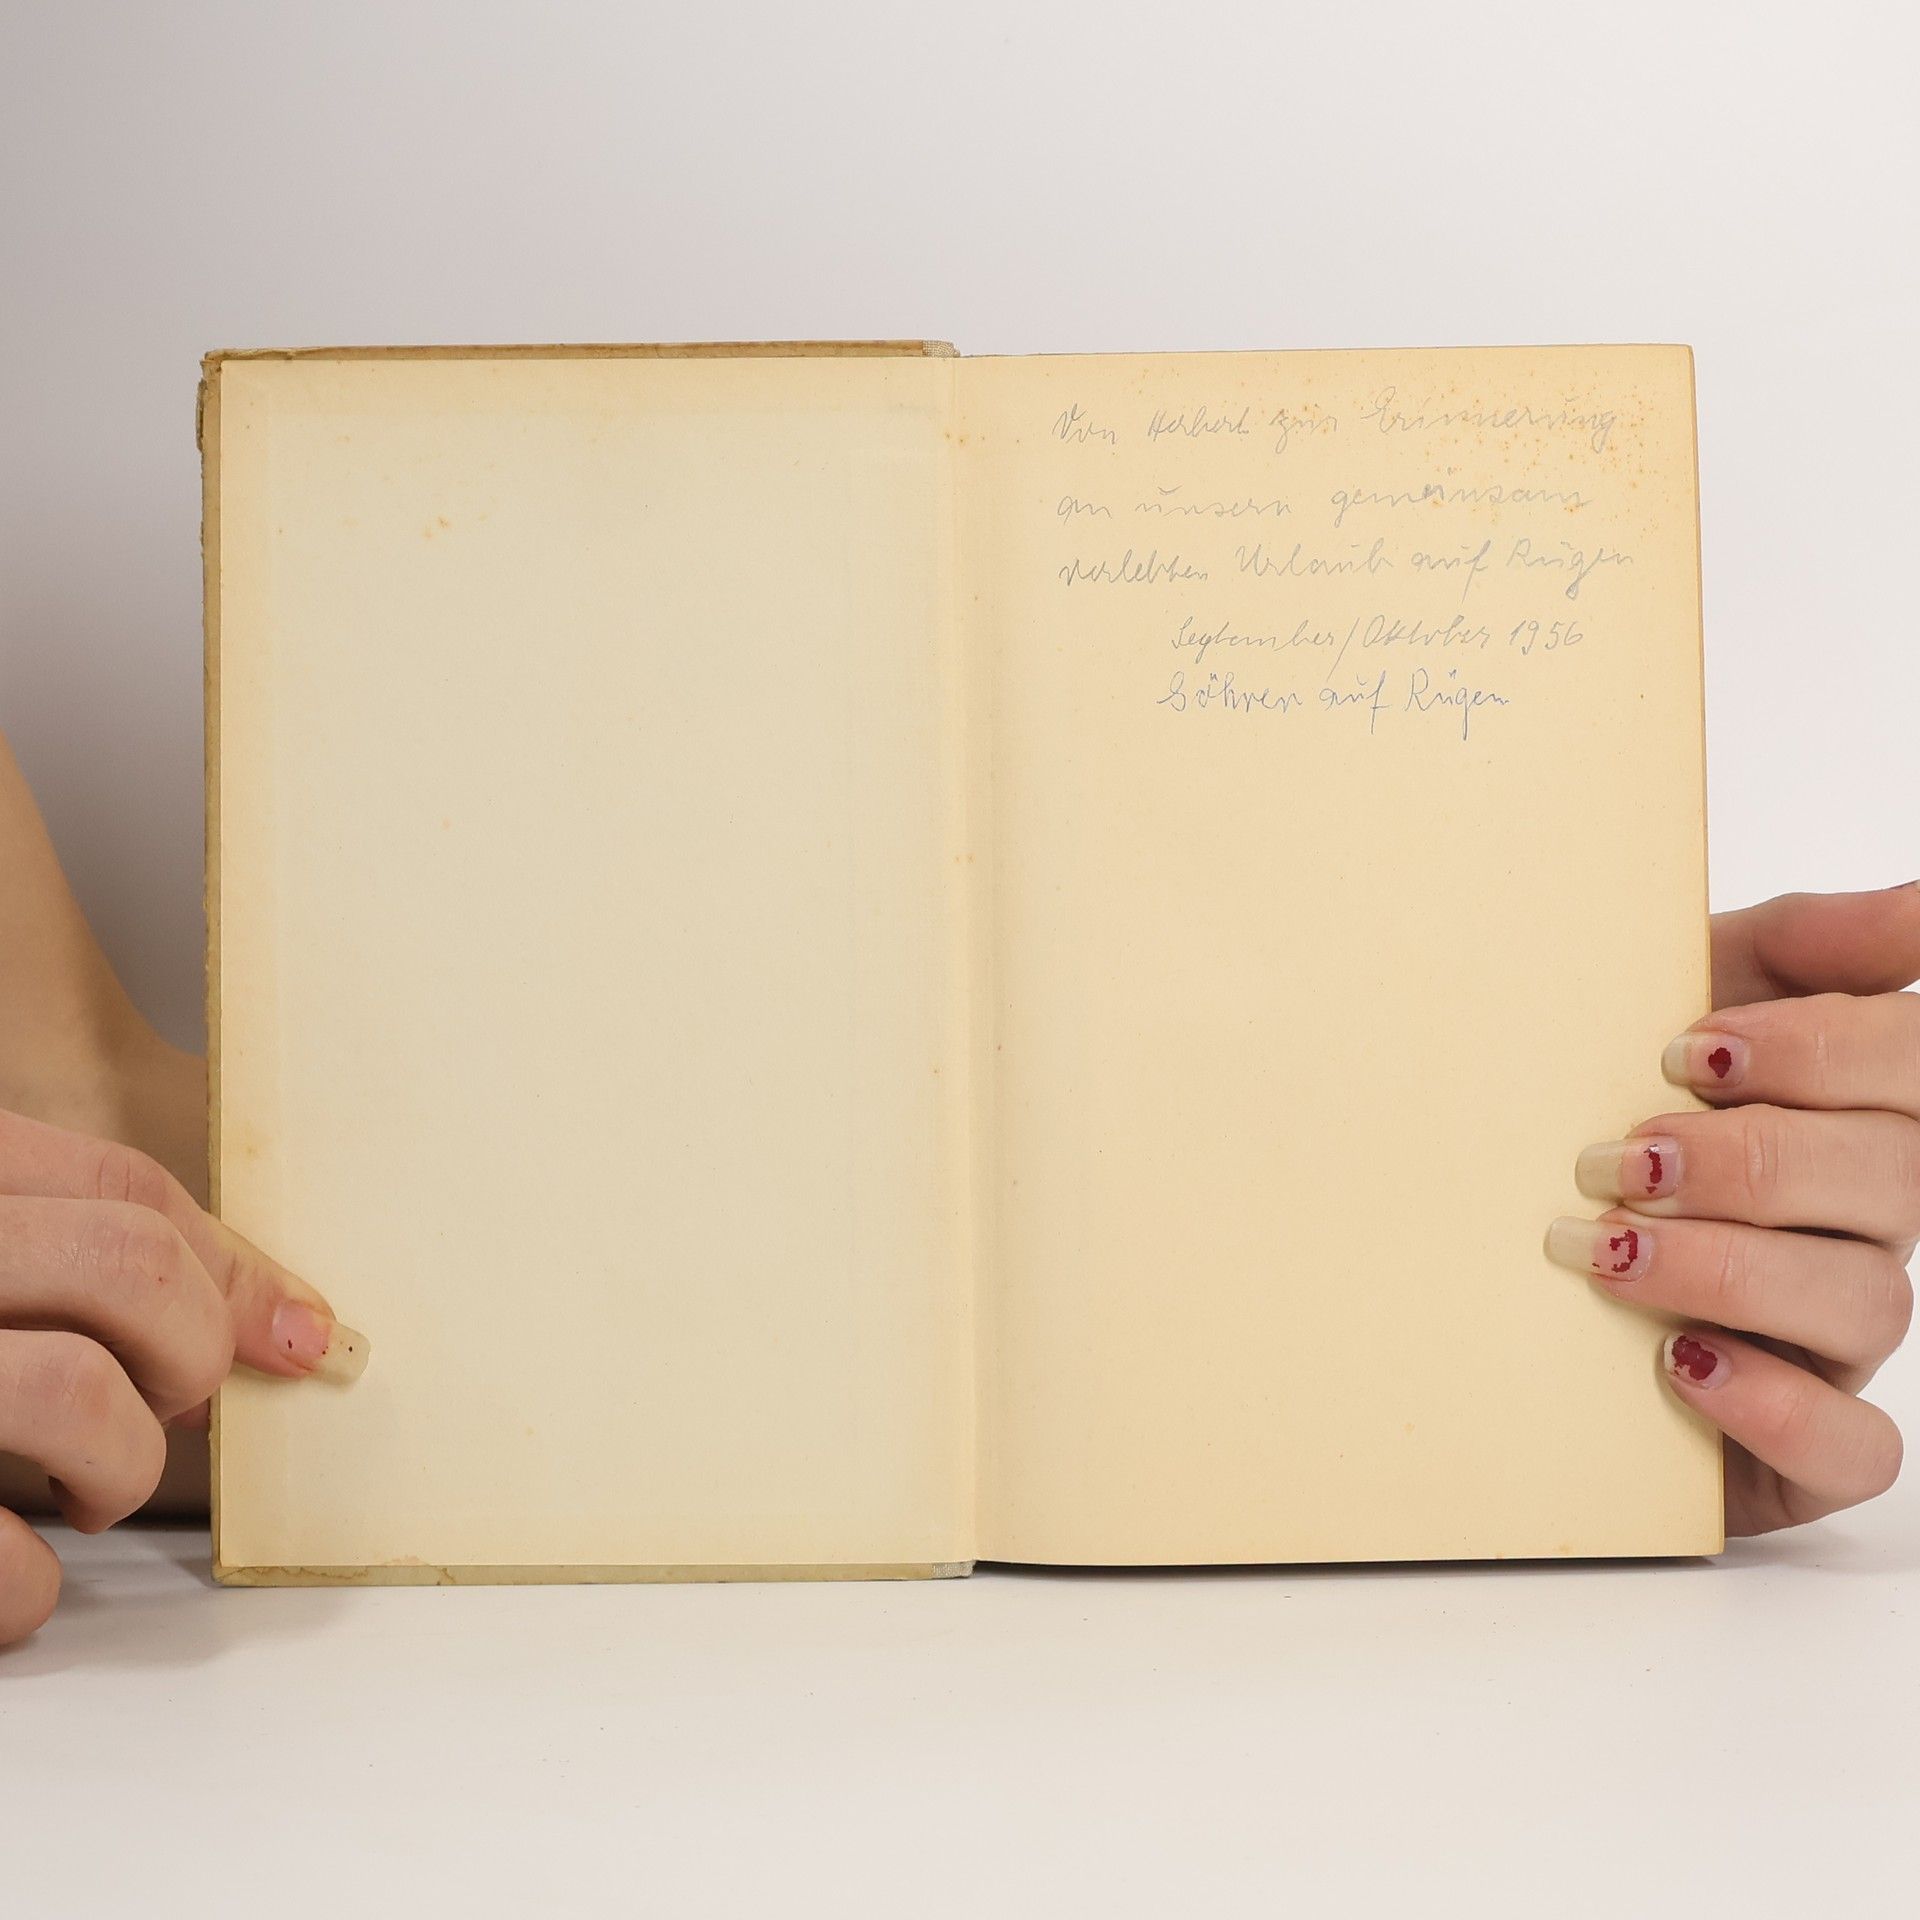 Von Herbert zur Erinnerung
an unsern gemeinsam
verlebten Urlaub auf Rügen
September/Oktober 1956
Göhren auf Rügen